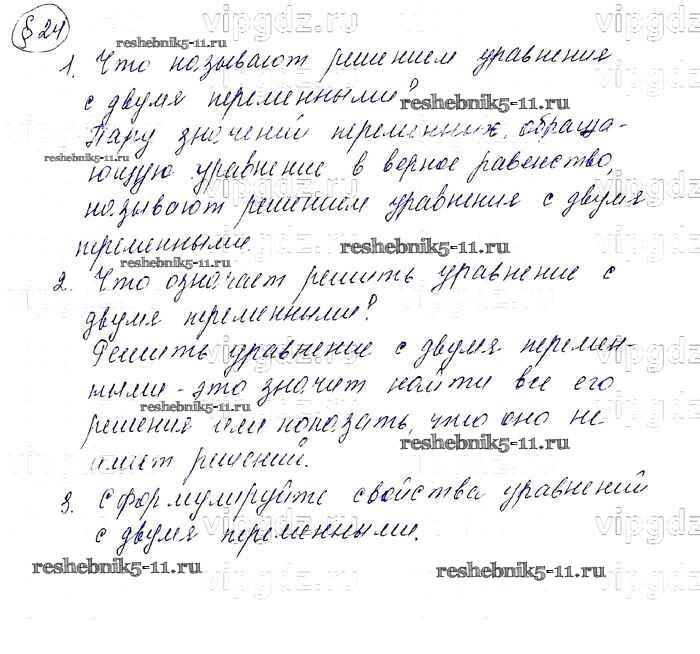 §24
1. Что называют решением уравнения
с двумя переменными?
Пару значений переменных, обраща-
ющую уравнение в верное равенство,
называют решением уравнения с двумя
переменными.
2. Что означает решить уравнение с
двумя переменными?
Решить уравнение с двумя перемен-
ными - это значит найти все его
решения или показать, что оно не
имеет решений.
3. Сформулируйте свойства уравнений
с двумя переменными.
reshebnik5-11.ru
reshebnik5-11.ru
reshebnik5-11.ru
reshebnik5-11.ru
reshebnik5-11.ru
reshebnik5-11.ru
reshebnik5-11.ru
reshebnik5-11.ru
vipgdz.ru
vipgdz.ru
vipgdz.ru
vipgdz.ru